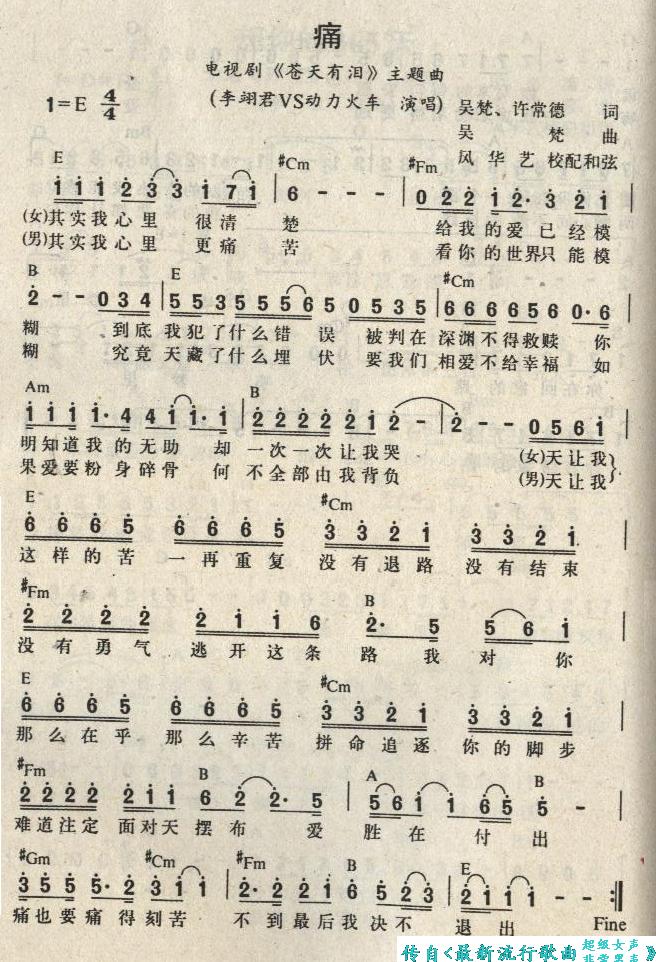 痛
电视剧《苍天有泪》主题曲
1=E 4/4 (李翊君VS动力火车 演唱) 吴梵、许常德 词
吴 梵 曲
风华艺校配和弦
E #Cm #Fm
1 1 1 2 3 3 1 7 1 | 6 - - - | 0 2 2 1 2· 3 2 1 |
(女)其实我心里 很清 楚 给我的爱已经模
(男)其实我心里 更痛 苦 看你的世界只能模
B E #Cm
2 - - 0 3 4 | 5 5 3 5 5 5 6 5 0 5 3 5 | 6 6 6 6 5 6 0· 6 |
糊 到底我犯了什么错 误 被判在深渊不得救赎 你
糊 究竟天藏了什么埋 伏 要我们相爱不给幸福 如
Am B
1 1 1 1· 4 4 1 1· 1 | 2 2 2 2 2 1 2 - | 2 - - 0 5 6 1 |
明知道我的无助 却一次一次让我哭 (女)天让我
果爱要粉身碎骨 何不全部由我背负 (男)天让我
E #Cm
6 6 6 5 6 6 6 5 3 3 2 1 3 3 2 1 |
这样的苦 一再重复 没有退路 没有结束
#Fm B
2 2 2 2 2 1 1 6 2· 5 5 6 1 |
没有勇气 逃开这条 路我对 你
E #Cm
6 6 6 5 6 6 6 5 3 3 2 1 3 3 2 1 |
那么在乎 那么辛苦 拼命追逐 你的脚步
#Fm B A B
2 2 2 2 2 1 1 6 2 2· 5 | 5 6 1 1 6 5 5 - |
难道注定 面对天摆布 爱 胜在 付出
#Gm #Cm #Fm B E
3 5 5 5· 2 3 1 1 | 2· 2 2 1 6 5 2 3 | 2 1 1 1 - - :‖
痛也要痛得刻苦 不到最后我决不 退出 Fine
传自<最新流行歌曲 超级女声 非常男声 》